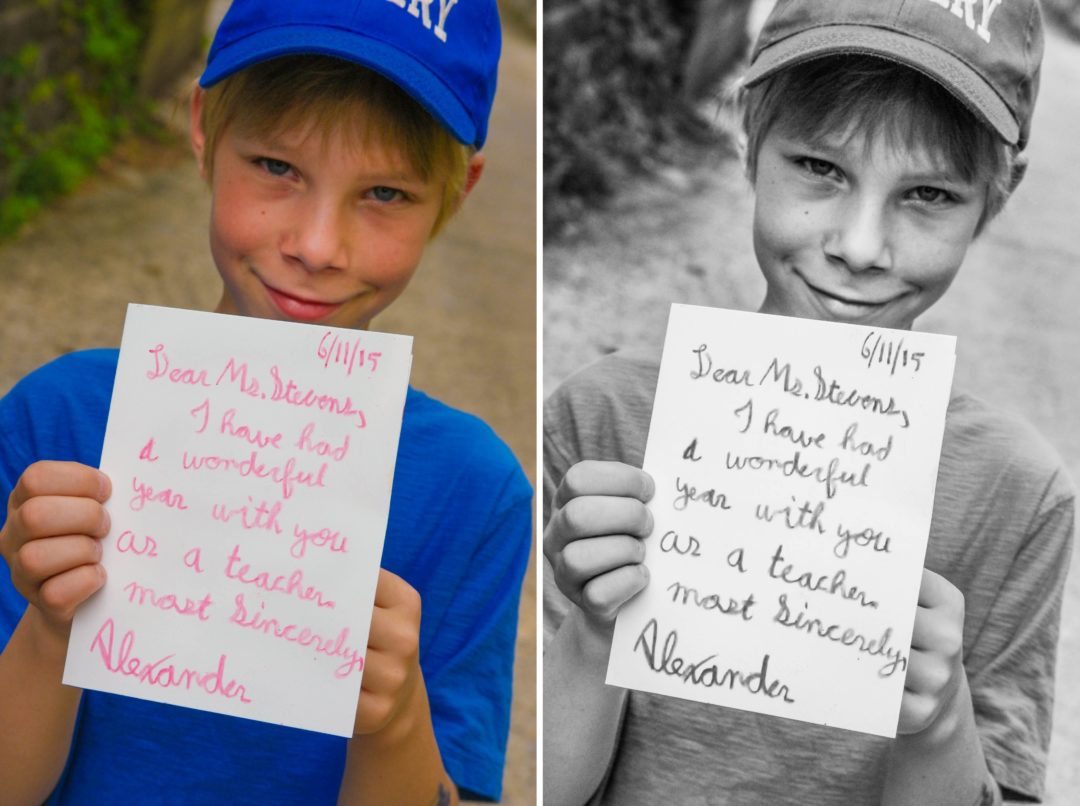 6/11/15
Dear Ms. Stevens,
I have had
a wonderful
year with you
as a teacher.
most Sincerely,
Alexander
6/11/15
Dear Ms. Stevens,
I have had
a wonderful
year with you
as a teacher.
most Sincerely,
Alexander